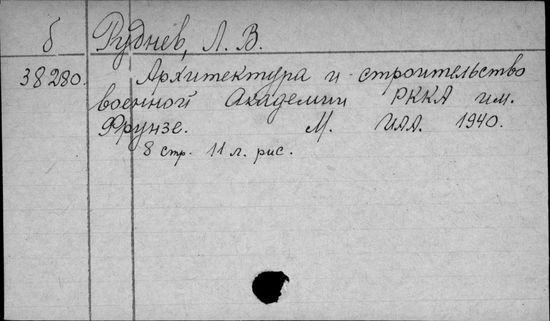 б Руднев, Л. В.
38280. Архитектура и строительство
военной Академии РККА им.
Фрунзе. М. ИАА. 1940.
8 стр. 11 л. рис.